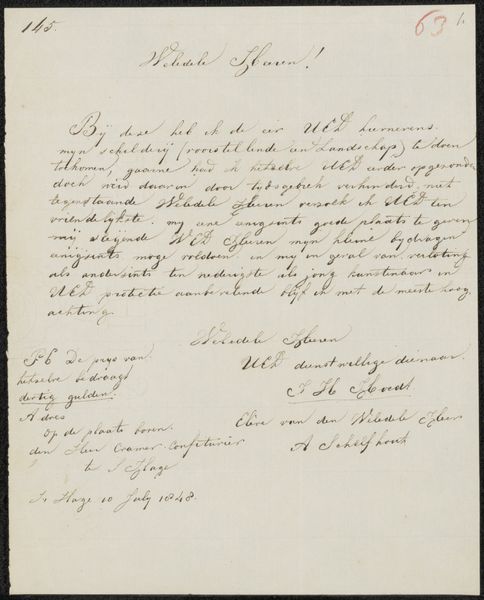 145.
63 1.
Weledele Heeren!
Bij deze heb ik de eer UED hiernevens
mijn schilderij (voorstellende een Landschap) te doen
toekomen, gaarne had ik hetzelve UED eerder opgezonden
doch werd daarin door tijdsgebrek verhinderd. niet
tegenstaande Weledele Heeren verzoek ik UED ten
vriendelykste. my ene enigsints goede plaats te geven
WED Heeren mijn kleine bydragen
enigsints moge voldoen. en my in geval van verloting
als andersints ten nederigste als jong kunstenaar in
UED protectie aanbevelende blyf ik met de meeste hoog
achting.
Weledele Heeren
UED dienstwillige dienaar.
J H Hoedt
Eleve van den Weledele Heer
A Schelfhout
PS De prys van
hetzelve bedraagt
dertig gulden.
Adres
op de plaats boven.
den Heer Cramer. Confiturier
te S Hage
S. Hage 10 July 1848.